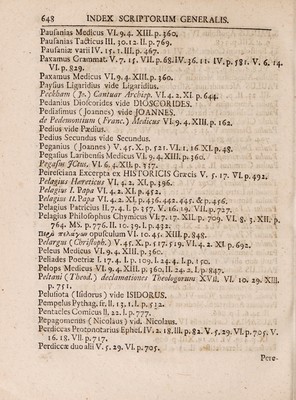 648 INDEX SCRIPTORUM GENERALIS.
Pausanias Medicus VI. 9. 4. XIII. p. 360.
Pausanias Tacticus III. 30. 12. II. p. 769.
Pausaniæ varii IV. 15. 1. III. p. 467.
Paxamus Grammat. V. 7. 15. VII. p. 68. IV. 36. 11. IV. p. 581. V. 6. 14.
VI. p. 829.
Paxamus Medicus VI. 9. 4. XIII. p. 360.
Paysius Ligaridius vide Ligaridius.
Peckham (Jo.) Cantuar Archiep. VI. 4. 2. XI. p. 644.
Pedanius Dioscorides vide DIOSCORIDES.
Pediasimus (Joannes) vide JOANNES.
de Pedemontium (Franc.) Medicus VI. 9. 4. XIII. p. 162.
Pedius vide Pædius.
Pedius Secundus vide Secundus.
Peganius (Joannes) V. 45. X. p. 521. VI. 1. 16. XI. p. 48.
Pegasius Laribensis Medicus VI. 9. 4. XIII. p. 360.
Pegasus JCtus. VI. 6. 4. XII. p. 317.
Peiresciana Excerpta ex HISTORICIS Græcis V. 5. 17. VI. p. 492.
Pelagius Hæreticus VI. 4. 2. XI. p. 396.
Pelagius I. Papa VI. 4. 2. XI. p. 452.
Pelagius II. Papa VI. 4. 2. XI. p. 436. 442. 445. & p. 456.
Pelagius Patricius II. 7. 4. I. p. 357. V. 16. 19. VII. p. 727.
Pelagius Philosophus Chymicus VI. 7. 17. XII. p. 709. VI. 8. 3. XII. p.
764. MS. p. 776. II. 10. 19. I. p. 432.
opusculum VI. 10. 41. XIII. p. 848.
Pelargus (Christoph.) V. 45. X. p. 517. 519. VI. 4. 2. XI. p. 692.
Peleus Medicus VI. 9. 4. XIII. p. 360.
Peliades Poetriæ I. 17. 4. I. p. 109. I. 24. 4. I. p. 150.
Pelops Medicus VI. 9. 4. XIII. p. 360. II. 24. 2. I. p. 847.
Peltani (Theod.) declamationes Theologorum XVII. VI. 10. 29. XIII.
p. 751.
Pelusiota (Isidorus) vide ISIDORUS.
Pempelus Pythag. fr. II. 13. 1. I. p. 532.
Pentacles Comicus II. 22. I. p. 777.
Pepagomenus (Nicolaus) vid. Nicolaus.
Perdiccas Protonotarius Ephes. IV. 2. 18. III. p. 82. V. 5. 29. VI. p. 705. V.
16. 18. VII. p. 717.
Perdiccæ duo alii V. 5. 29. VI. p. 705.